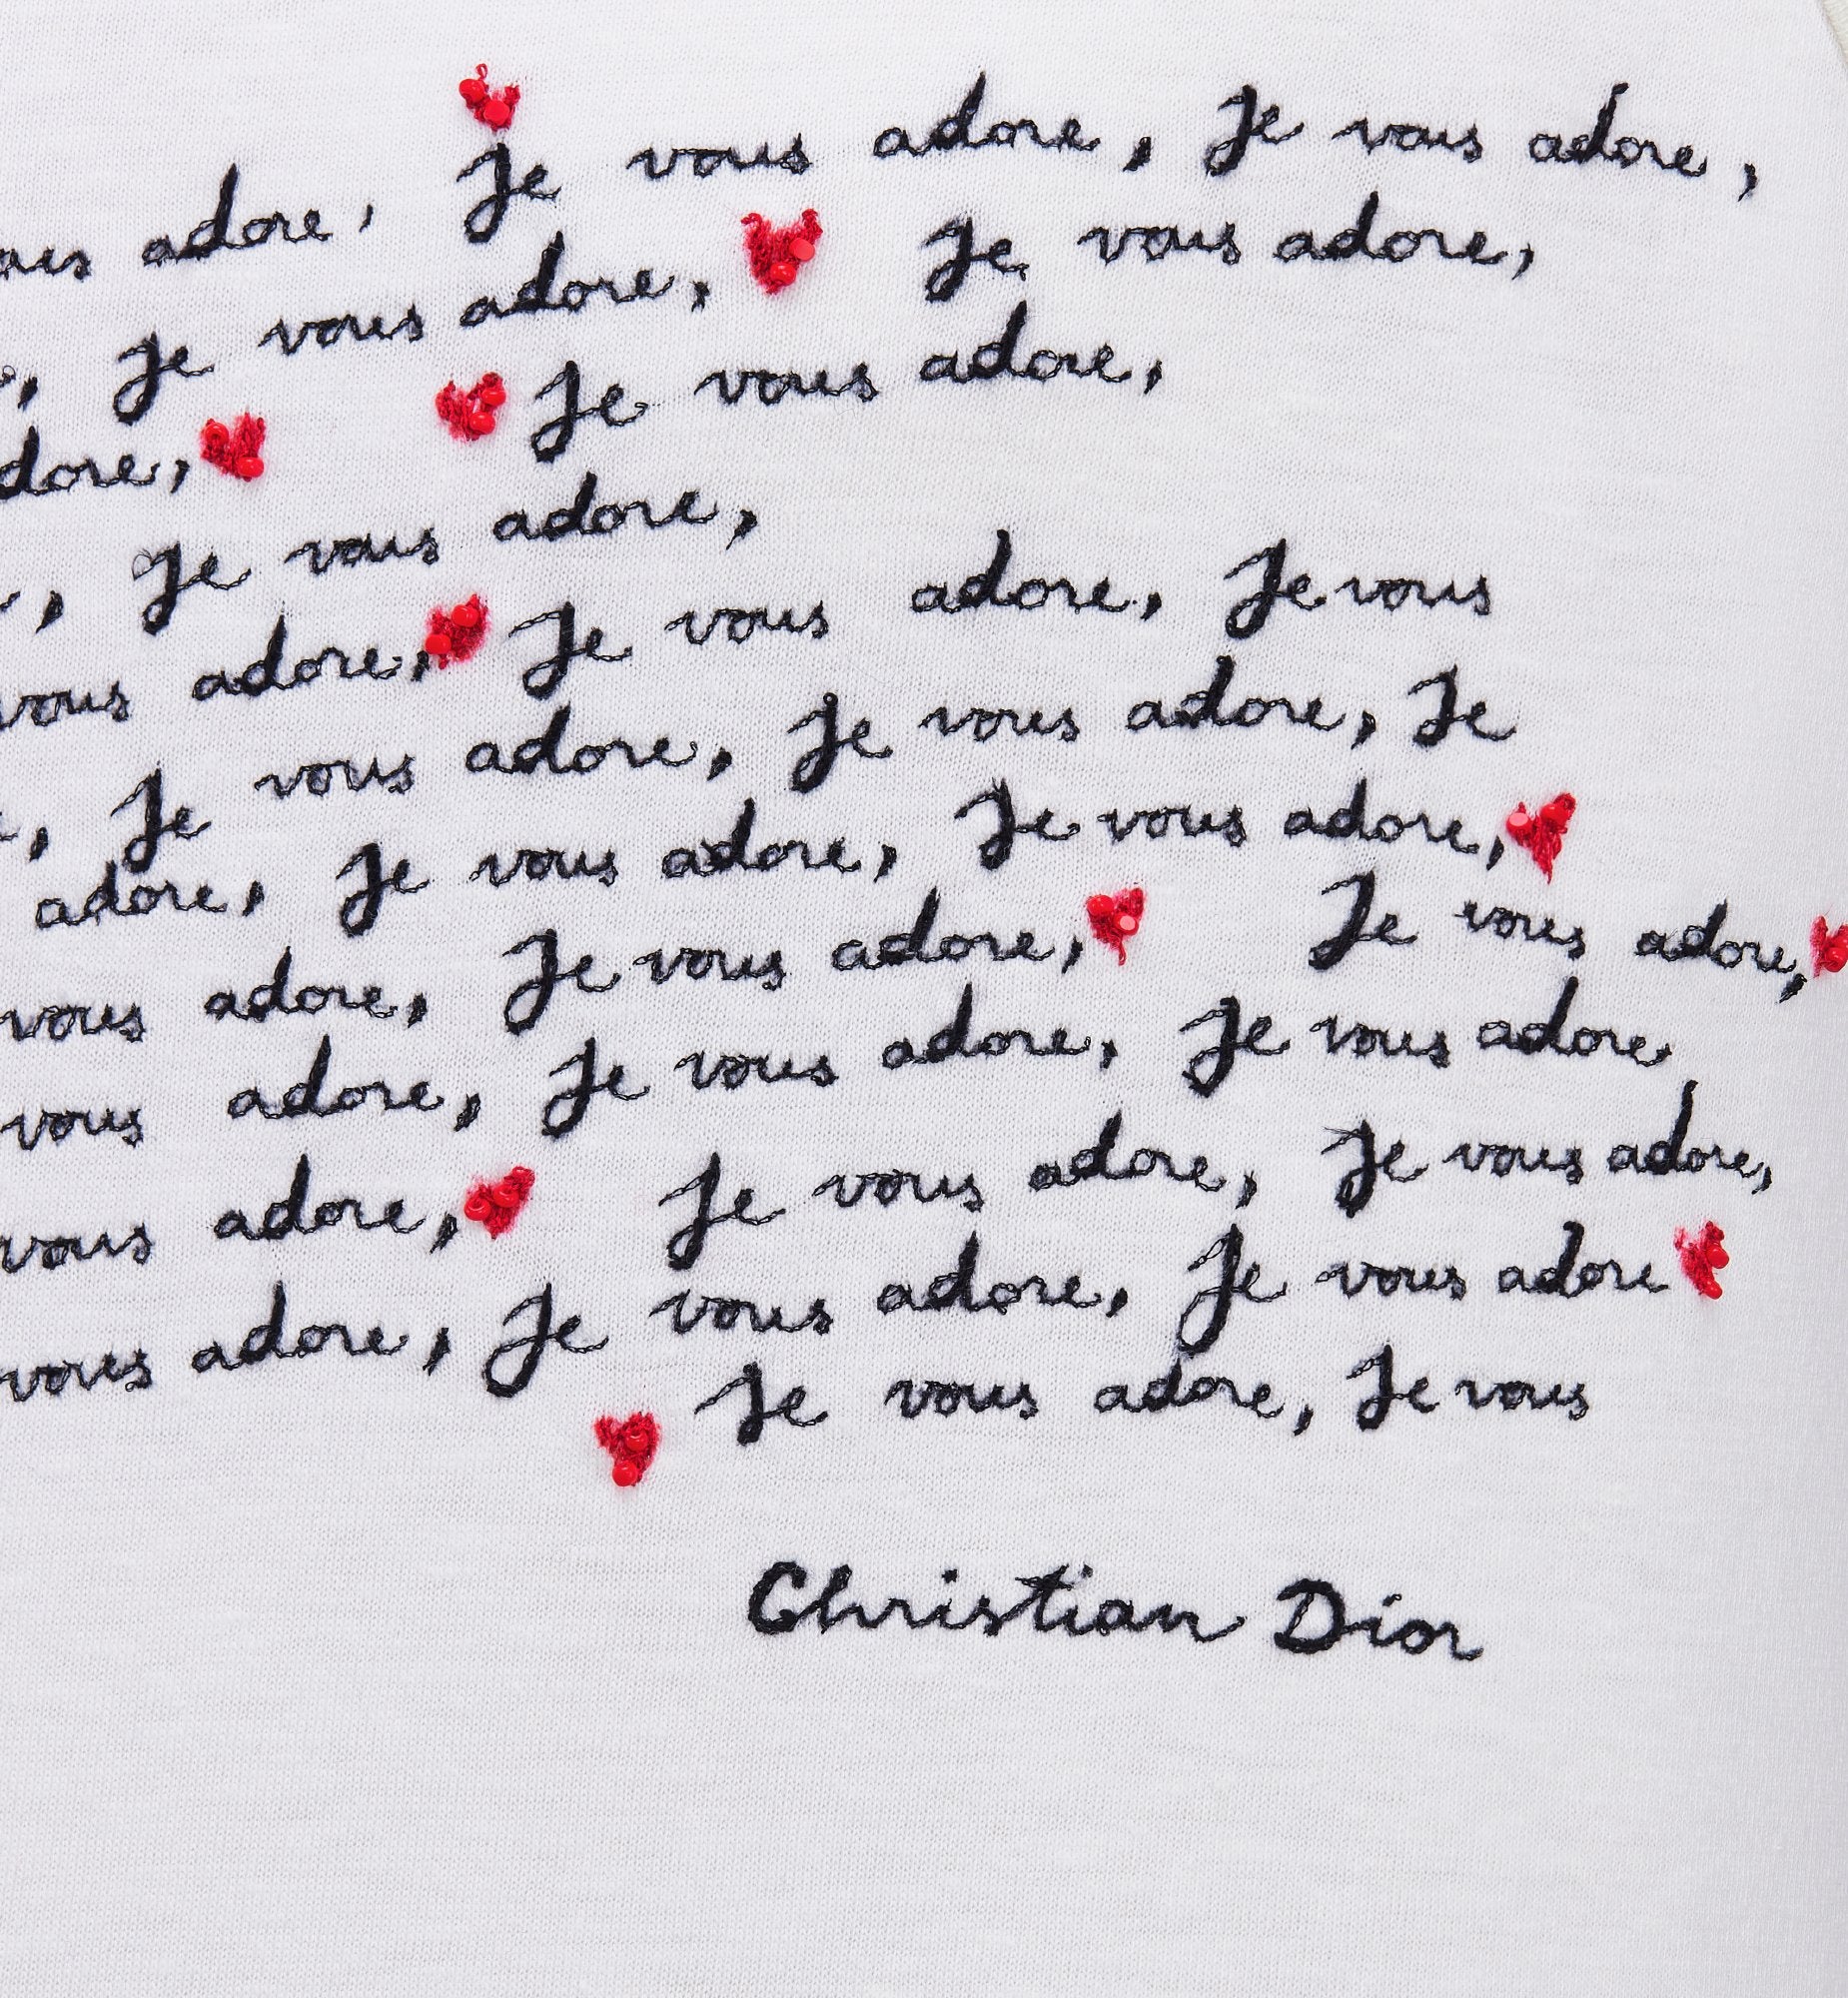 adore, Je vous adore, Je vous adore,
Je vous adore, Je vous adore,
Je vous adore,
Je vous adore,
vous adore, Je vous adore, Je vous
Je vous adore, Je vous adore, Je
adore, Je vous adore, Je vous adore,
vous adore, Je vous adore, Je vous adore,
vous adore, Je vous adore, Je vous adore
vous adore, Je vous adore, Je vous adore,
vous adore, Je vous adore, Je vous adore
Je vous adore, Je vous
Christian Dior